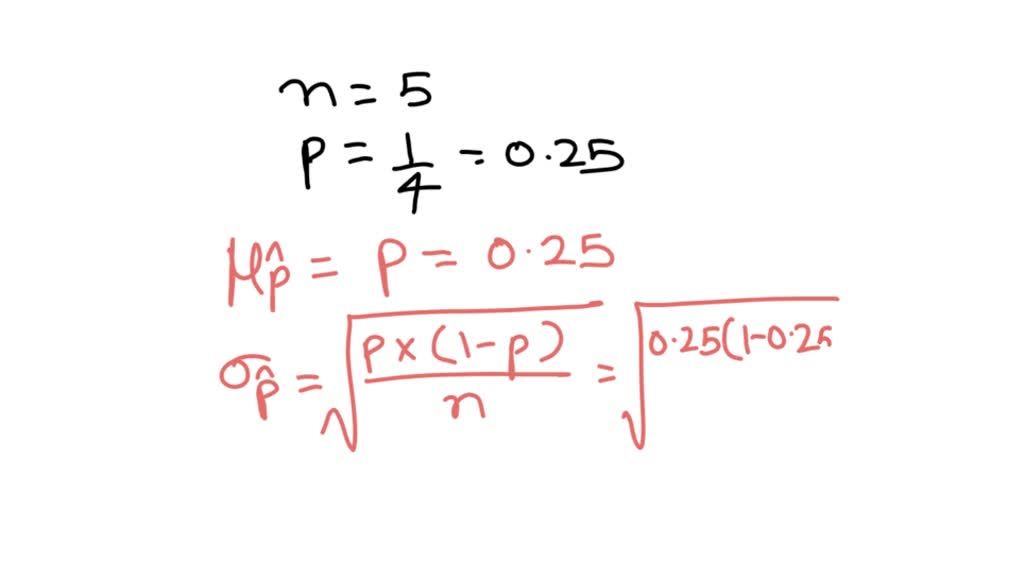 n = 5
p = 1/4 = 0.25
μp̂ = p = 0.25
σp̂ = √(p × (1-p)/n) = √(0.25(1-0.25